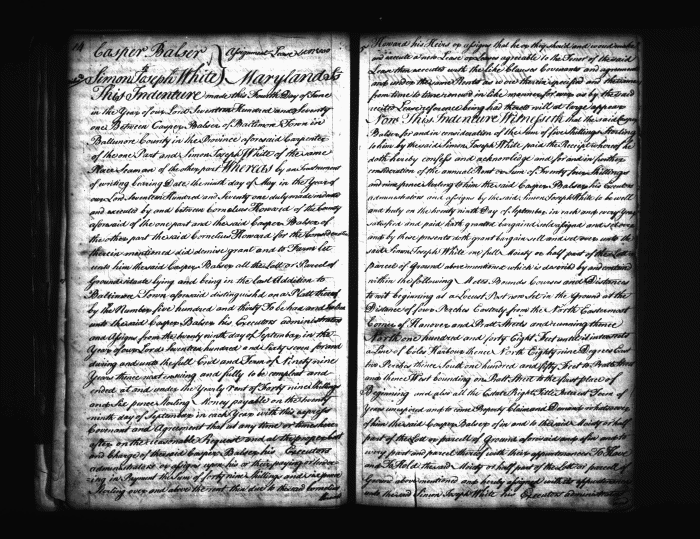 14 Casper Balser } Assignment Lease
to
Simon Joseph White } Maryland Ss
This Indenture made this Fourth Day of June
in the Year of our Lord Seventeen Hundred and Seventy
one Between Casper Balser of Baltimore Town in
Baltimore County in the Province aforesaid Carpenter
of the one Part and Simon Joseph White of the same
Place Seaman of the other part Whereas by an Instrument
of writing bearing Date the ninth day of May in the Year of
our Lord Seventeen Hundred and Seventy one duly made indented
and executed by and between Cornelius Howard of the County
aforesaid of the one part and the said Casper Balser of
the other part the said Cornelius Howard for the Consideration
therein mentioned did demise grant and to Farm let
unto him the said Casper Balser all that Lott or Parcel of
Ground situate lying and being in the last Addition to
Baltimore Town aforesaid distinguished on a Platt thereof
by the Number five hundred and thirty To be had and
unto the said Casper Balser his Executors administrators
and Assigns from the twenty ninth day of September in the
Year of our Lord Seventeen hundred and Sixty
during and unto the full End and Term of Ninety nine
Years thence next ensuing and fully to be compleat and
ended at and under the Yearly Rent of Forty nine Shillings
and Six pence Sterling Money payable on the twenty
ninth day of September in each Year with this express
Covenant and Agreement that at any time or times
after on the reasonable Request and at the proper Cost
and Charge of the said Casper Balser his Executors
administrators or assigns upon his or their paying or
ing in Payment the Sum of forty nine Shillings and six pence
Sterling over and above the rent then due to the said Cornelius
Howard his Heirs or assigns that he or they should and would make
and execute a new Lease or Leases agreeable to the Tenor of the said
Lease then executed with the like Clauses Covenants and agreements
and under the same Rent as were therein specified and
from time to time renewed in like manner for ever as by the said
recited Lease reference being had thereto will at large appear
Now This Indenture Witnesseth that the said Casper
Balser for and in consideration of the Sum of five Shillings Sterling
to him by the said Simon Joseph White paid the Receipt whereof he
doth hereby confess and acknowledge and for and in further
consideration of the annual Rent or Sum of Twenty four Shillings
and nine pence Sterling to him the said Casper Balser his Executors
administrators and assigns by the said Simon Joseph White to be well
and truly on the twenty ninth Day of September in each and every Year
satisfied and paid hath granted bargained sold assigned and set over
and by these presents doth grant bargain sell and set over unto the
said Simon Joseph White one full Moiety or half part of the Lott or
parcel of Ground above mentioned which is described by and contained
within the following Metes Bounds Courses and Distances
to wit beginning at a Locust Post now set in the Ground at the
Distance of four Perches Easterly from the North Easternmost
Corner of Hanover and Pratt Streets and running thence
North one hundred and forty Eight Feet until it intersects
a Line of Coles Harbour thence North Eighty nine Degrees East
five Perches thence South one hundred and fifty Feet to Pratt Street
and thence West bounding on Pratt Street to the first place of
Beginning and also all the Estate Right Title Interest Term of
Years unexpired and to come Property Claim and Demand whatsoever
of him the said Casper Balser of in and to the said Moiety or half
part of the Lott or parcel of Ground aforesaid and of in and to
every part and parcel thereof with their appurtenances To Have
and To Hold the said Moiety or half part of the Lott or parcel of
Ground above mentioned and hereby assigned with its appurtenances
unto the said Simon Joseph White his Executors administrators